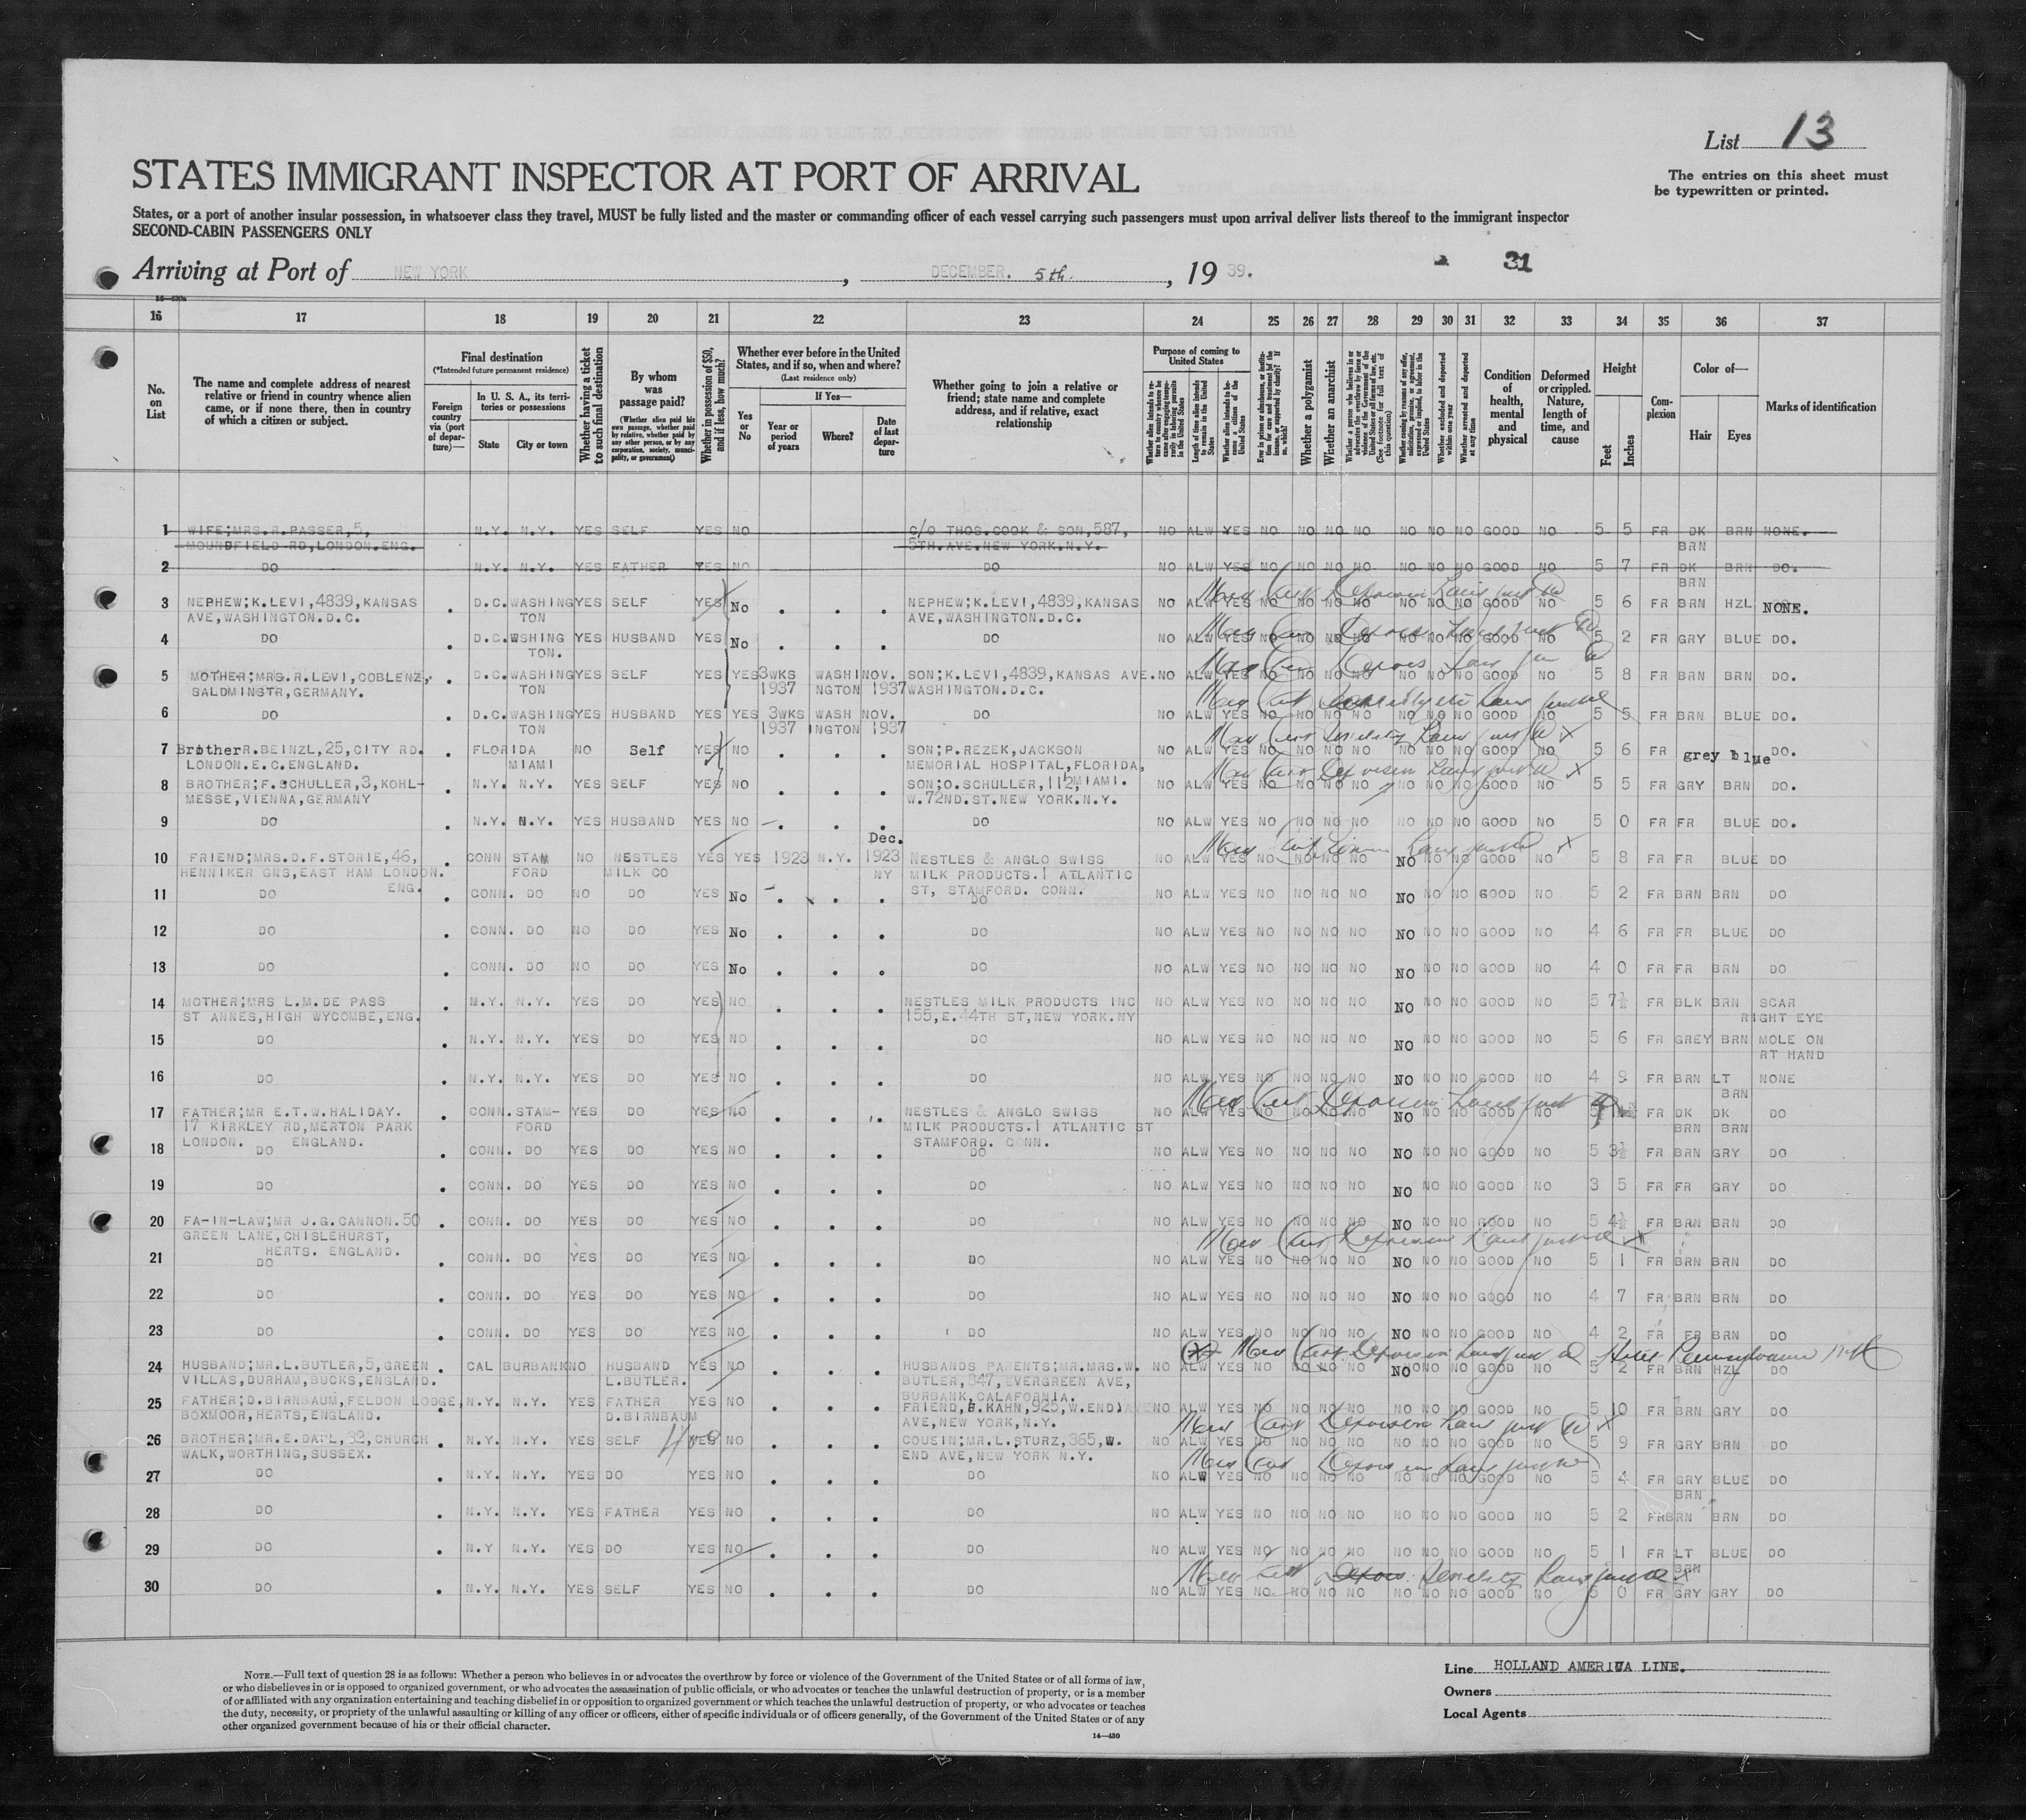 List 13
The entries on this sheet must
be typewritten or printed.
STATES IMMIGRANT INSPECTOR AT PORT OF ARRIVAL
States, or a port of another insular possession, in whatsoever class they travel, MUST be fully listed and the master or commanding officer of each vessel carrying such passengers must upon arrival deliver lists thereof to the immigrant inspector
SECOND-CABIN PASSENGERS ONLY
Arriving at Port of NEW YORK, DECEMBER. 5th., 19 39.
31
16 17 18 19 20 21 22 23 24 25 26 27 28 29 30 31 32 33 34 35 36 37
No. on List
The name and complete address of nearest relative or friend in country whence alien came, or if none there, then in country of which a citizen or subject.
Final destination
(*Intended future permanent residence)
Foreign country via (port of departure)—
In U. S. A., its territories or possessions
State
City or town
Whether having a ticket to such final destination
By whom was passage paid?
(Whether alien paid his own passage, whether paid by relative, whether paid by any other person, or by any corporation, society, municipality, or government)
Whether in possession of $50, and if less, how much?
Whether ever before in the United States, and if so, when and where?
(Last residence only)
Yes or No
If Yes—
Year or period of years
Where?
Date of last departure
Whether going to join a relative or friend; state name and complete address, and if relative, exact relationship
Purpose of coming to United States
Whether a polygamist
Whether an anarchist
Condition of health, mental and physical
Deformed or crippled. Nature, length of time, and cause
Height
Feet
Inches
Complexion
Color of—
Hair
Eyes
Marks of identification
1 WIFE;MRS.R.PASSER,5, N.Y. N.Y. YES SELF YES NO C/O THOS.COOK & SON,587, NO ALW YES NO NO NO NO NO NO NO GOOD NO 5 5 FR DK BRN NONE.
MOUNDFIELD RD,LONDON.ENG. 5TH.AVE.NEW YORK.N.Y. BRN
2 DO N.Y. N.Y. YES FATHER YES NO DO NO ALW YES NO NO NO NO NO NO NO GOOD NO 5 7 FR DK BRN DO.
BRN
3 NEPHEW;K.LEVI,4839,KANSAS D.C. WASHING YES SELF YES No NEPHEW;K.LEVI,4839,KANSAS NO ALW YES NO NO NO NO NO NO NO GOOD NO 5 6 FR BRN HZL NONE.
AVE,WASHINGTON.D.C. TON AVE,WASHINGTON.D.C.
4 DO D.C. WSHING YES HUSBAND YES No DO NO ALW YES NO NO NO NO NO NO NO GOOD NO 5 2 FR GRY BLUE DO.
TON.
5 MOTHER;MRS.R.LEVI,COBLENZ, D.C. WASHING YES SELF YES YES 3WKS WASHI NOV. SON;K.LEVI,4839,KANSAS AVE. NO ALW YES NO NO NO NO NO NO NO GOOD NO 5 8 FR BRN BRN DO.
SALDMINSTR,GERMANY. TON 1937 NGTON 1937 WASHINGTON.D.C.
6 DO D.C. WASHING YES HUSBAND YES YES 3WKS WASH NOV. DO NO ALW YES NO NO NO NO NO NO NO GOOD NO 5 5 FR BRN BLUE DO.
TON 1937 INGTON 1937
7 Brother R.BEINZL,25,CITY RD. FLORIDA NO Self YES NO SON;P.REZEK,JACKSON NO ALW YES NO NO NO NO NO NO NO GOOD NO 5 6 FR grey blue DO.
LONDON.E.C.ENGLAND. MIAMI MEMORIAL HOSPITAL,FLORIDA,
MIAMI.
8 BROTHER;F.SCHULLER,3,KOHL- N.Y. N.Y. YES SELF YES NO SON;O.SCHULLER,112, NO ALW YES NO NO NO NO NO NO NO GOOD NO 5 5 FR GRY BRN DO.
MESSE,VIENNA,GERMANY W.72ND.ST.NEW YORK.N.Y.
9 DO N.Y. N.Y. YES HUSBAND YES NO DO NO ALW YES NO NO NO NO NO NO NO GOOD NO 5 0 FR FR BLUE DO.
Dec.
10 FRIEND;MRS.D.F.STORIE,46, CONN STAM NO NESTLES YES YES 1923 N.Y. 1923 NESTLES & ANGLO SWISS NO ALW YES NO NO NO NO NO NO NO GOOD NO 5 8 FR FR BLUE DO
HENNIKER GNS,EAST HAM LONDON. FORD MILK CO NY MILK PRODUCTS.1 ATLANTIC
ENG. ST, STAMFORD. CONN.
11 DO CONN. DO NO DO YES No DO NO ALW YES NO NO NO NO NO NO NO GOOD NO 5 2 FR BRN BRN DO
12 DO CONN. DO NO DO YES No DO NO ALW YES NO NO NO NO NO NO NO GOOD NO 4 6 FR FR BLUE DO
13 DO CONN. DO NO DO YES No DO NO ALW YES NO NO NO NO NO NO NO GOOD NO 4 0 FR FR BRN DO
14 MOTHER;MRS L.M.DE PASS N.Y. N.Y. YES DO YES NO NESTLES MILK PRODUCTS INC NO ALW YES NO NO NO NO NO NO NO GOOD NO 5 7½ FR BLK BRN SCAR
ST ANNES,HIGH WYCOMBE,ENG. 155,E.44TH ST,NEW YORK.NY RIGHT EYE
15 DO N.Y. N.Y. YES DO YES NO DO NO ALW YES NO NO NO NO NO NO NO GOOD NO 5 6 FR GREY BRN MOLE ON
RT HAND
16 DO N.Y. N.Y. YES DO YES NO DO NO ALW YES NO NO NO NO NO NO NO GOOD NO 4 9 FR BRN LT NONE
BRN
17 FATHER;MR E.T.W.HALIDAY. CONN. STAM- YES DO YES NO NESTLES & ANGLO SWISS NO ALW YES NO NO NO NO NO NO NO GOOD NO 5 FR DK DK DO
17 KIRKLEY RD,MERTON PARK FORD MILK PRODUCTS.1 ATLANTIC ST BRN BRN
LONDON. ENGLAND. STAMFORD. CONN.
18 DO CONN. DO YES DO YES NO DO NO ALW YES NO NO NO NO NO NO NO GOOD NO 5 3½ FR BRN GRY DO
19 DO CONN. DO YES DO YES NO DO NO ALW YES NO NO NO NO NO NO NO GOOD NO 3 5 FR FR GRY DO
20 FA-IN-LAW;MR J.G.CANNON.50 CONN. DO YES DO YES NO DO NO ALW YES NO NO NO NO NO NO NO GOOD NO 5 4½ FR BRN BRN DO
GREEN LANE,CHISLEHURST,
HERTS. ENGLAND.
21 DO CONN. DO YES DO YES NO DO NO ALW YES NO NO NO NO NO NO NO GOOD NO 5 1 FR BRN BRN DO
22 DO CONN. DO YES DO YES NO DO NO ALW YES NO NO NO NO NO NO NO GOOD NO 4 7 FR BRN BRN DO
23 DO CONN. DO YES DO YES NO DO NO ALW YES NO NO NO NO NO NO NO GOOD NO 4 2 FR FR BRN DO
Hotel Pennsylvania
24 HUSBAND;MR.L.BUTLER,5,GREEN CAL BURBANK NO HUSBAND YES NO HUSBANDS PARENTS;MR.MRS.W. NO ALW YES NO NO NO NO NO NO NO GOOD NO 5 2 FR BRN HZL DO
VILLAS,DURHAM,BUCKS,ENGLAND. L.BUTLER. BUTLER,347,EVERGREEN AVE,
BURBANK,CALAFORNIA.
25 FATHER;D.BIRNBAUM,FELDON LODGE, N.Y. N.Y. YES FATHER YES NO FRIEND,B.KAHN,925,W.END AVE NO ALW YES NO NO NO NO NO NO NO GOOD NO 5 10 FR BRN GRY DO
BOXMOOR,HERTS,ENGLAND. D.BIRNBAUM AVE,NEW YORK,N.Y.
26 BROTHER;MR.E.DARL,32,CHURCH N.Y. N.Y. YES SELF YES NO COUSIN;MR.L.STURZ,365,W. NO ALW YES NO NO NO NO NO NO NO GOOD NO 5 9 FR GRY BRN DO
WALK,WORTHING,SUSSEX. END AVE,NEW YORK N.Y.
27 DO N.Y. N.Y. YES DO YES NO DO NO ALW YES NO NO NO NO NO NO NO GOOD NO 5 4 FR GRY BLUE DO
BRN
28 DO N.Y. N.Y. YES FATHER YES NO DO NO ALW YES NO NO NO NO NO NO NO GOOD NO 5 2 FR BRN BRN DO
29 DO N.Y N.Y. YES DO YES NO DO NO ALW YES NO NO NO NO NO NO NO GOOD NO 5 1 FR LT BLUE DO
BRN
30 DO N.Y. N.Y. YES SELF YES NO DO NO ALW YES NO NO NO NO NO NO NO GOOD NO 5 0 FR GRY GRY DO
NOTE.—Full text of question 28 is as follows: Whether a person who believes in or advocates the overthrow by force or violence of the Government of the United States or of all forms of law,
or who disbelieves in or is opposed to organized government, or who advocates the assassination of public officials, or who advocates or teaches the unlawful destruction of property, or is a member
of or affiliated with any organization entertaining and teaching disbelief in or opposition to organized government or which teaches the unlawful destruction of property, or who advocates or teaches
the duty, necessity, or propriety of the unlawful assaulting or killing of any officer or officers, either of specific individuals or of officers generally, of the Government of the United States or of any
other organized government because of his or their official character.
14—430
Line HOLLAND AMERICA LINE.
Owners
Local Agents